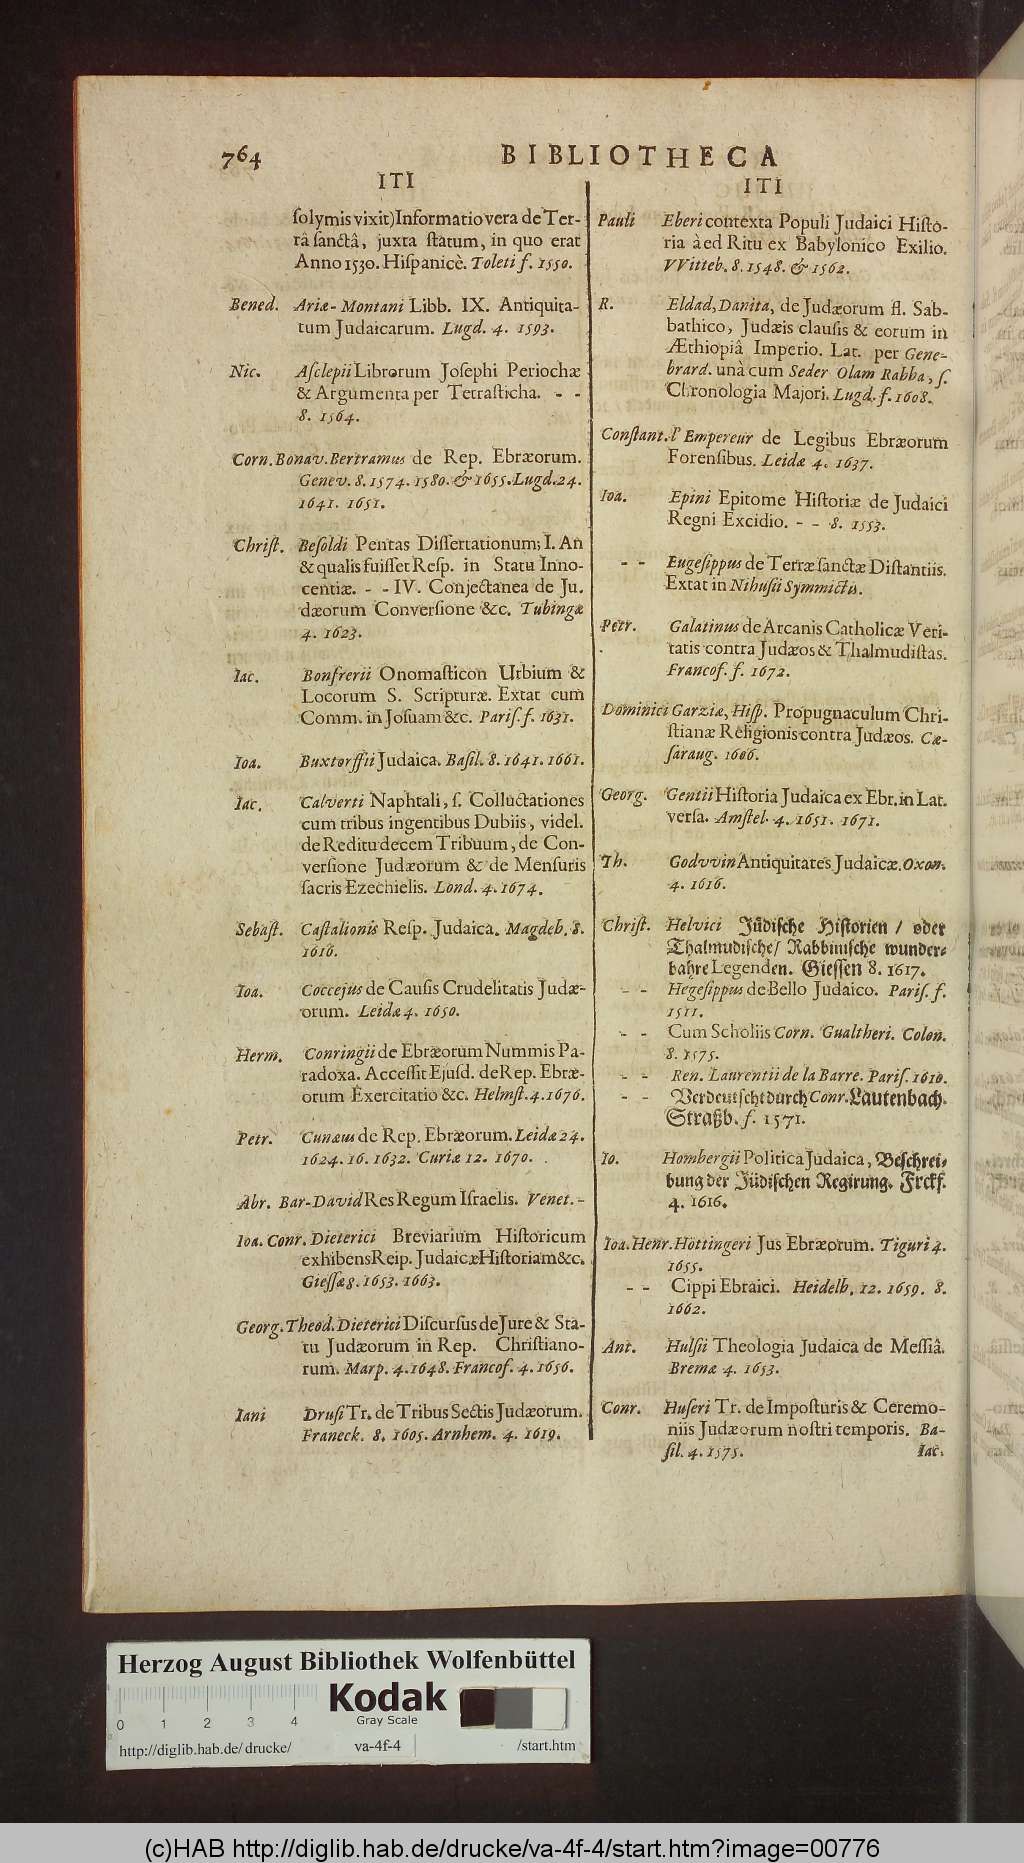 764
BIBLIOTHECA
ITI
ſolymis vixit) Informatio vera de Ter-
râ ſanctâ, juxta ſtatum, in quo erat
Anno 1530. Hiſpanicè. Toleti f. 1550.
Bened. Ariæ-Montani Libb. IX. Antiquita-
tum Judaicarum. Lugd. 4. 1593.
Nic. Aſclepii Librorum Joſephi Periochæ
& Argumenta per Tetraſticha. - -
8. 1564.
Corn. Bonav. Bertramus de Rep. Ebræorum.
Genev. 8. 1574. 1580. & 1655. Lugd. 24.
1641. 1651.
Chriſt. Beſoldi Pentas Diſſertationum; I. An
& qualis fuiſſet Reſp. in Statu Inno-
centiæ. - - IV. Conjectanea de Ju-
dæorum Converſione &c. Tubingæ
4. 1623.
Iac. Bonfrerii Onomaſticon Urbium &
Locorum S. Scripturæ. Extat cum
Comm. in Joſuam &c. Pariſ. f. 1631.
Ioa. Buxtorffii Judaica. Baſil. 8. 1641. 1661.
Iac. Calverti Naphtali, ſ. Colluctationes
cum tribus ingentibus Dubiis, videl.
de Reditu decem Tribuum, de Con-
verſione Judæorum & de Menſuris
ſacris Ezechielis. Lond. 4. 1674.
Sebaſt. Caſtalionis Reſp. Judaica. Magdeb. 8.
1616.
Ioa. Coccejus de Cauſis Crudelitatis Judæ-
orum. Leidæ 4. 1650.
Herm. Conringii de Ebræorum Nummis Pa-
radoxa. Acceſſit Ejuſd. de Rep. Ebræ-
orum Exercitatio &c. Helmſt. 4. 1676.
Petr. Cunæus de Rep. Ebræorum. Leidæ 24.
1624. 16. 1632. Curiæ 12. 1670.
Abr. Bar-David Res Regum Iſraelis. Venet. -
Ioa. Conr. Dieterici Breviarium Hiſtoricum
exhibens Reip. Judaicæ Hiſtoriam &c.
Gieſſæ 8. 1653. 1663.
Georg. Theod. Dieterici Diſcurſus de Jure & Sta-
tu Judæorum in Rep. Chriſtiano-
rum. Marp. 4. 1648. Francof. 4. 1656.
Iani Druſi Tr. de Tribus Sectis Judæorum.
Franeck. 8. 1605. Arnhem. 4. 1619.
ITI
Pauli Eberi contexta Populi Judaici Hiſto-
ria à ed Ritu ex Babylonico Exilio.
VVitteb. 8. 1548. & 1562.
R. Eldad, Danita, de Judæorum fl. Sab-
bathico, Judæis clauſis & eorum in
Æthiopiâ Imperio. Lat. per Gene-
brard. unà cum Seder Olam Rabba, ſ.
Chronologia Majori. Lugd. f. 1608.
Conſtant. l' Empereur de Legibus Ebræorum
Forenſibus. Leidæ 4. 1637.
Ioa. Epini Epitome Hiſtoriæ de Judaici
Regni Excidio. - - 8. 1553.
- - Eugeſippus de Terræ ſanctæ Diſtantiis.
Extat in Nihuſii Symmictis.
Petr. Galatinus de Arcanis Catholicæ Veri-
tatis contra Judæos & Thalmudiſtas.
Francof. f. 1672.
Dominici Garziæ, Hiſp. Propugnaculum Chri-
ſtianæ Religionis contra Judæos. Cæ-
ſaraug. 1606.
Georg. Gentii Hiſtoria Judaica ex Ebr. in Lat.
verſa. Amſtel. 4. 1651. 1671.
Th. Godvvin Antiquitates Judaicæ. Oxon.
4. 1616.
Chriſt. Helvici Jüdiſche Hiſtorien / oder
Thalmudiſche / Rabbiniſche wunder-
bahre Legenden. Gieſſen 8. 1617.
- - Hegeſippus de Bello Judaico. Pariſ. f.
1511.
- - Cum Scholiis Corn. Gualtheri. Colon.
8. 1575.
- - Ren. Laurentii de la Barre. Pariſ. 1610.
- - Verdeutſcht durch Conr. Lautenbach.
Straßb. f. 1571.
Io. Hombergii Politica Judaica, Beſchrei-
bung der Jüdiſchen Regirung. Frckf.
4. 1616.
Ioa. Henr. Hottingeri Jus Ebræorum. Tiguri 4.
1655.
- - Cippi Ebraici. Heidelb. 12. 1659. 8.
1662.
Ant. Hulſii Theologia Judaica de Meſſiâ.
Bremæ 4. 1653.
Conr. Huſeri Tr. de Impoſturis & Ceremo-
niis Judæorum noſtri temporis. Ba-
ſil. 4. 1575.
Iac.
Herzog August Bibliothek Wolfenbüttel
Kodak
Gray Scale
0 1 2 3 4
http://diglib.hab.de/drucke/ va-4f-4 /start.htm
(c)HAB http://diglib.hab.de/drucke/va-4f-4/start.htm?image=00776